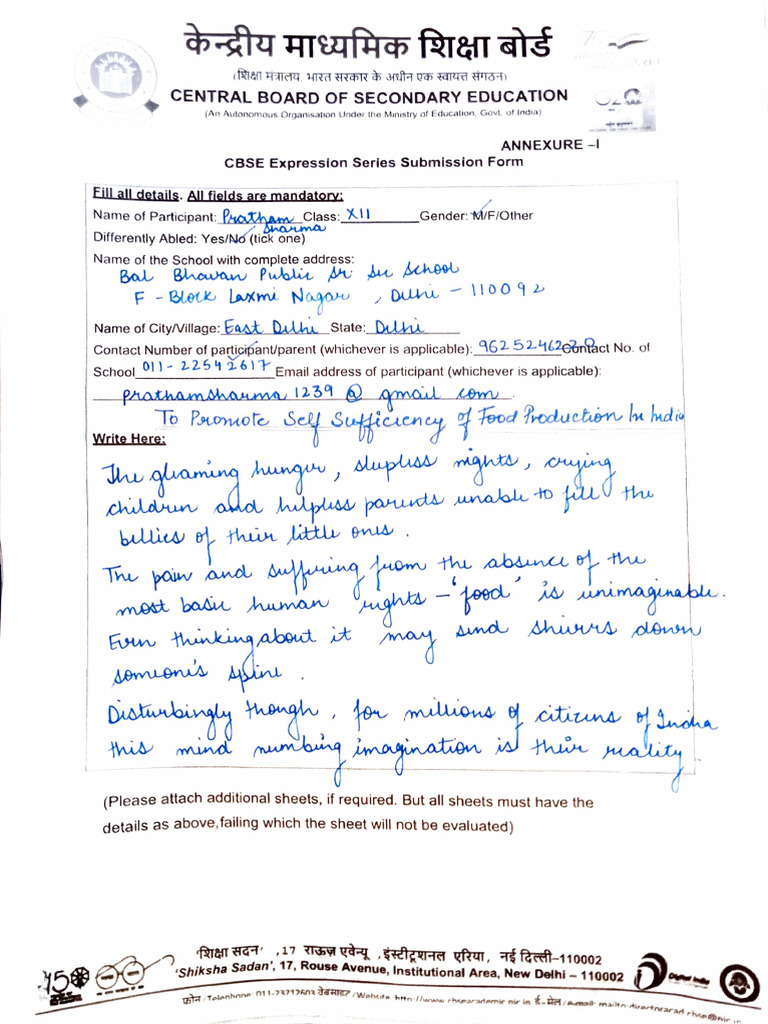 केन्द्रीय माध्यमिक शिक्षा बोर्ड
(शिक्षा मंत्रालय, भारत सरकार के अधीन एक स्वायत्त संगठन)
CENTRAL BOARD OF SECONDARY EDUCATION
(An Autonomous Organisation Under the Ministry of Education, Govt. of India)
G20
ANNEXURE –I
CBSE Expression Series Submission Form
Fill all details. All fields are mandatory:
Name of Participant: Pratham Sharma Class: XII Gender: M/F/Other
Differently Abled: Yes/No (tick one)
Name of the School with complete address:
Bal Bhawan Public Sr. Sec School
F - Block Laxmi Nagar , Delhi - 110092
Name of City/Village: East Delhi State: Delhi
Contact Number of participant/parent (whichever is applicable): Contact No. of
School 011- 22542617 Email address of participant (whichever is applicable):
prathamsharma1239@gmail com.
To Promote Self Sufficiency of Food Production In India
Write Here:
The gleaming hunger, sleepless nights, crying
children and helpless parents unable to fill the
bellies of their little ones.
The pain and suffering from the absence of the
most basic human rights - 'food' is unimaginable.
Even thinking about it may send shivers down
someone's spine.
Disturbingly though, for millions of citizens of India
this mind numbing imagination is their reality
(Please attach additional sheets, if required. But all sheets must have the
details as above,failing which the sheet will not be evaluated)
'शिक्षा सदन' ,17 राऊज़ एवेन्यू ,इंस्टीटूशनल एरिया, नई दिल्ली–110002
'Shiksha Sadan', 17, Rouse Avenue, Institutional Area, New Delhi – 110002
75
Digital India
फ़ोन/Telephone: 011-23212603 वेबसाइट/Website: http://www.cbseacademic.nic.in ई-मेल/e-mail: mailto:directoracad.cbse@nic.in